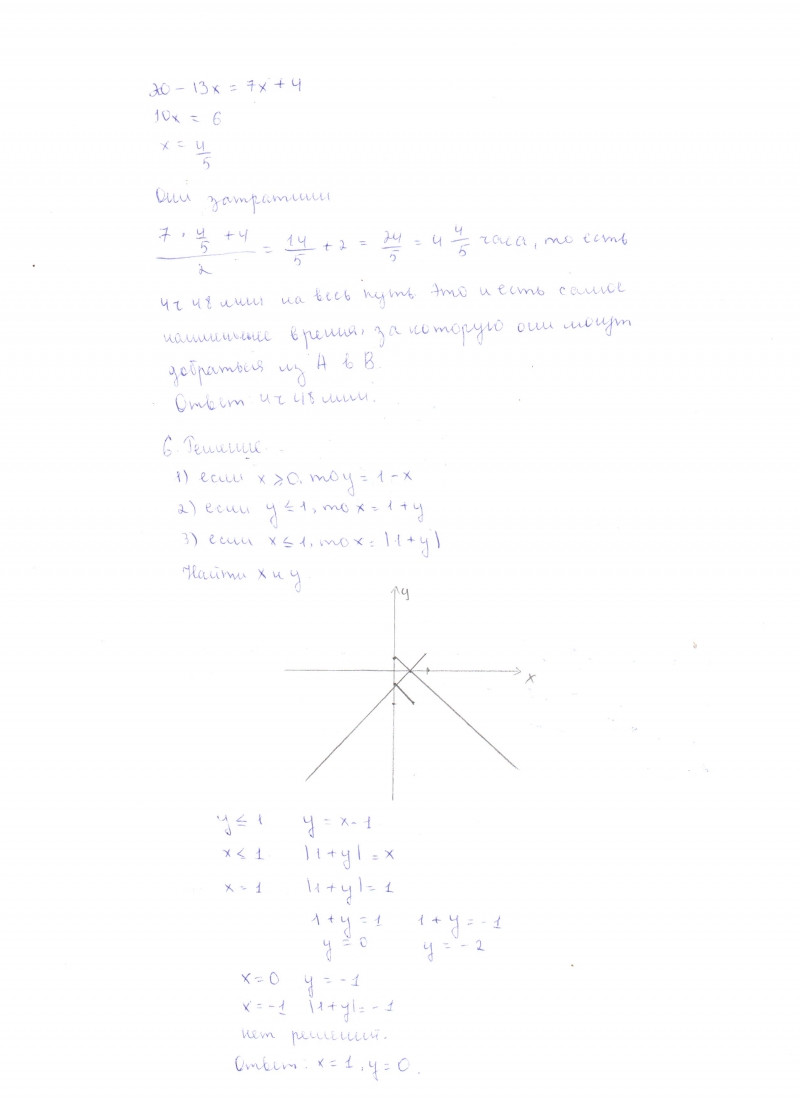 20 - 13x = 7x + 4
10x = 6
x = 4/5
Они затратили
(7 · 4/5 + 4)/2 = 14/5 + 2 = 24/5 = 4 4/5 часа, то есть
4ч 48 мин на весь путь. Это и есть самое
наименьшее время, за которую они могут
добраться из А в В.
Ответ 4ч 48 мин.
6. Решение.
1) если x ⩾ 0, то y = 1 - x
2) если y ≤ 1, то x = 1 + y
3) если x ≤ 1, то x = |1 + y|
Найти x и y.
y
x
y ≤ 1 y = x - 1
x ≤ 1 |1 + y| = x
x = 1 |1 + y| = 1
1 + y = 1 1 + y = -1
y = 0 y = -2
x = 0 y = -1
x = -1 |1 + y| = -1
нет решений.
Ответ: x = 1, y = 0.